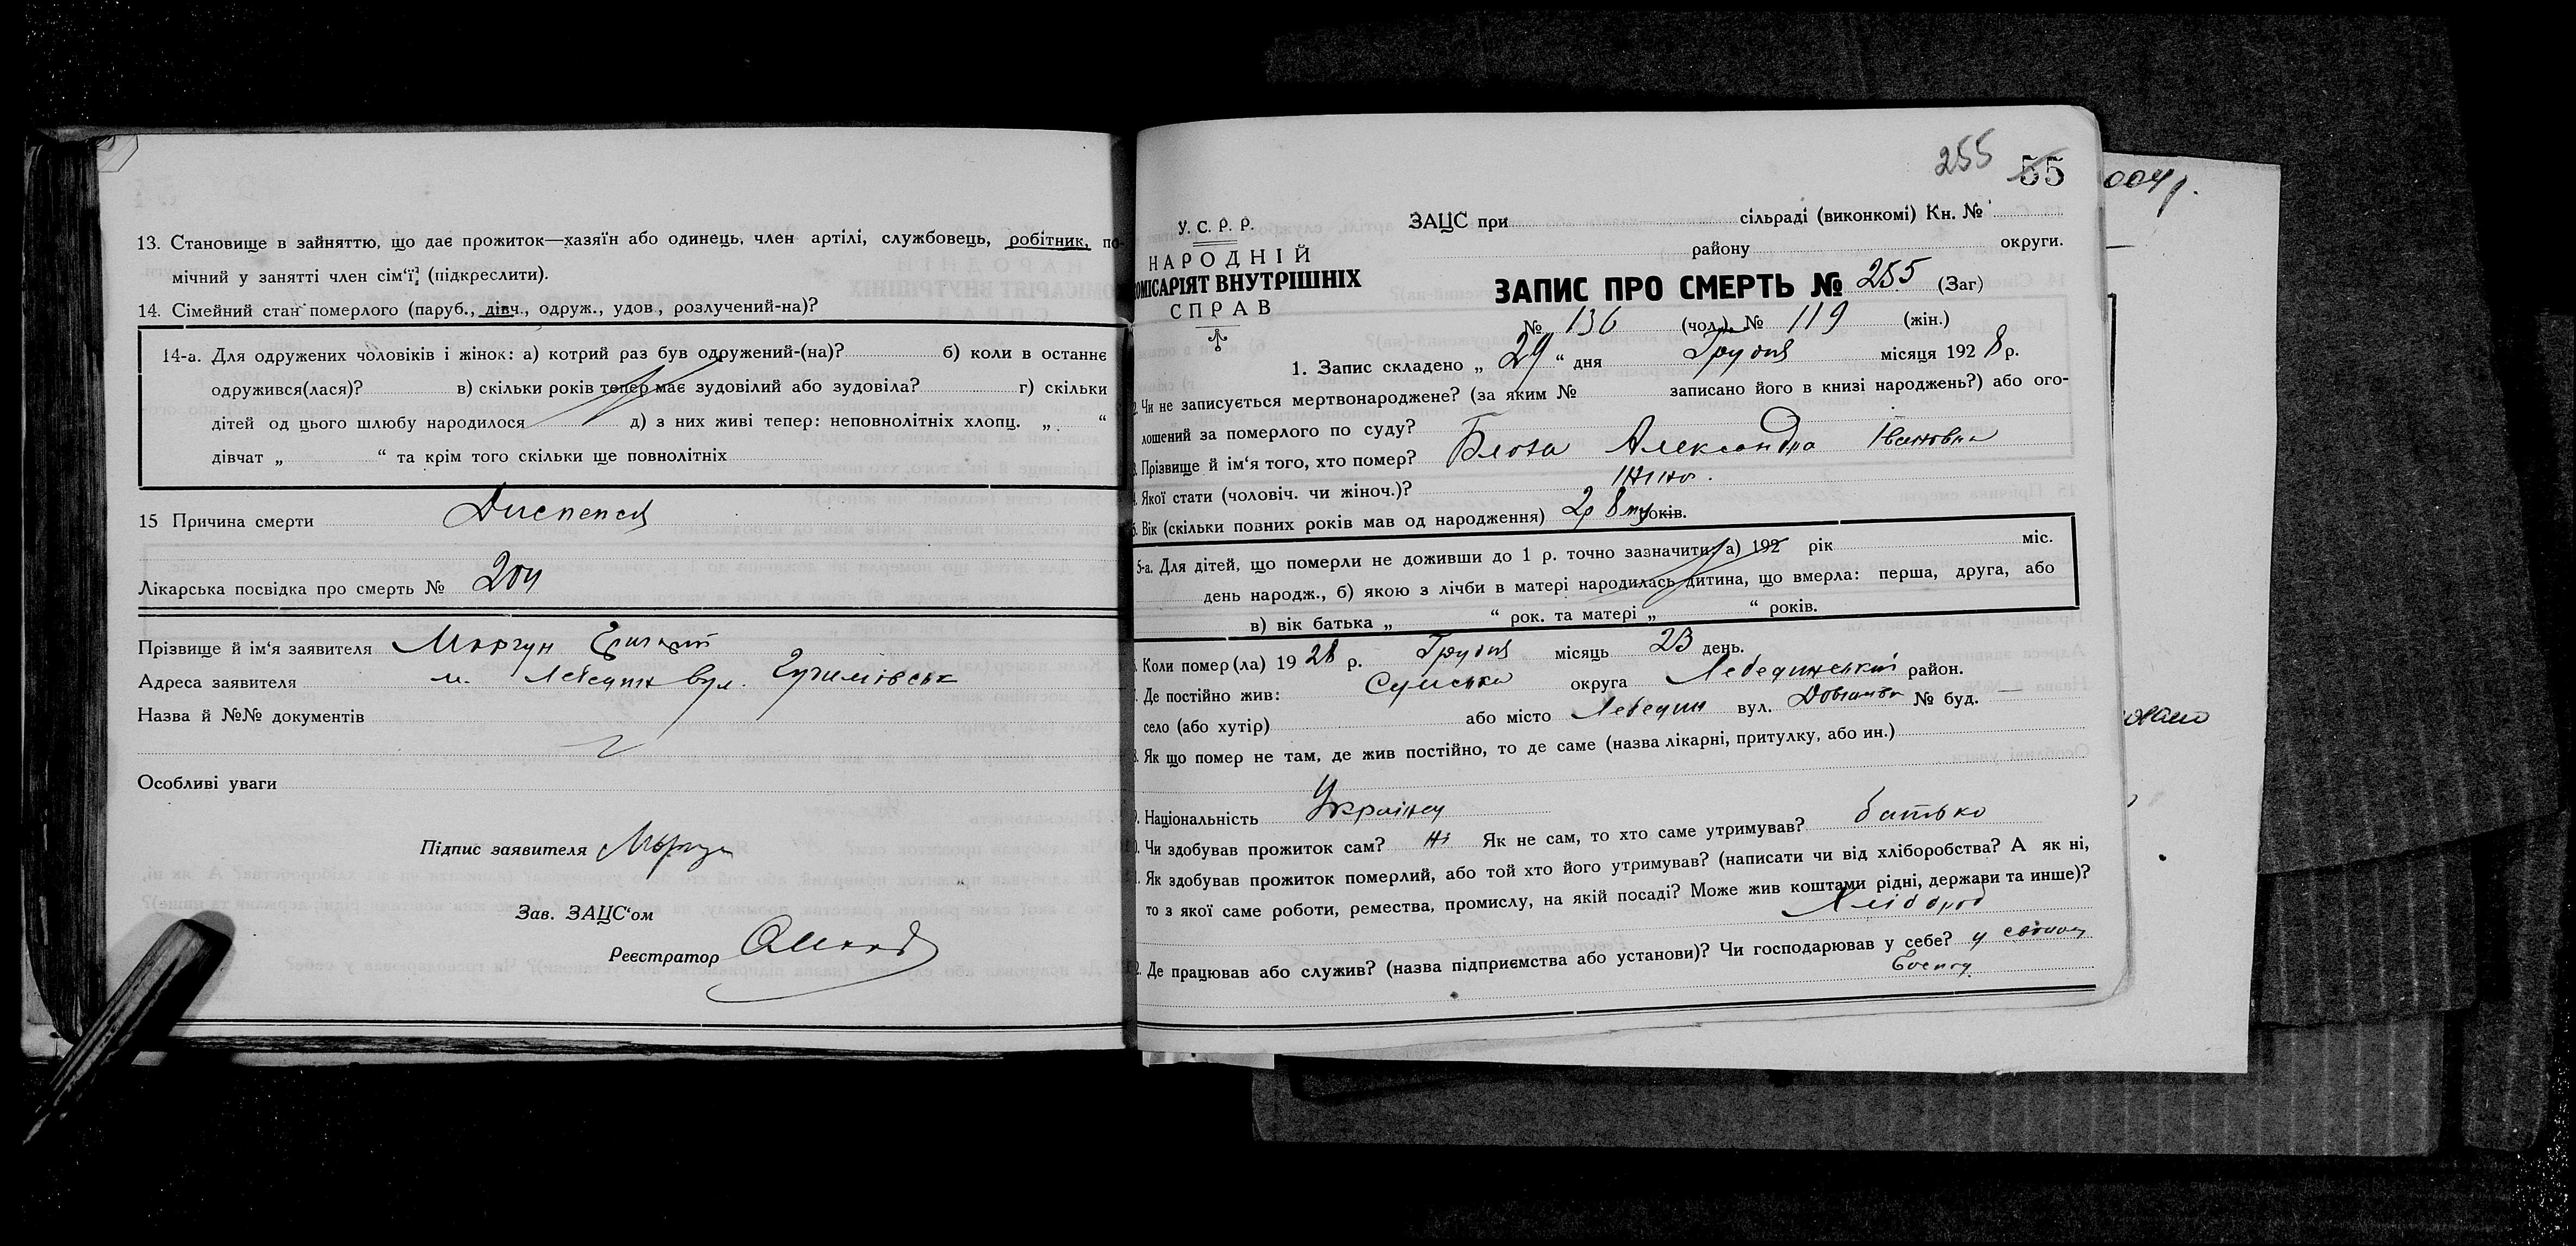 13. Становище в зайняттю, що дає прожиток—хазяїн або одинець, член артілі, службовець, робітник, по-
мічний у занятті член сім'ї, (підкреслити).
14. Сімейний стан померлого (паруб., дівч., одруж., удов., розлучений-на)?
14-а. Для одружених чоловіків і жінок: а) котрий раз був одружений-(на)? б) коли в останнє
одружився(лася)? в) скільки років тепер має зудовілий або зудовіла? г) скільки
дітей од цього шлюбу народилося д) з них живі тепер: неповнолітніх хлопц. „ “
дівчат „ “ та крім того скільки ще повнолітніх
15 Причина смерти Диспепсія
Лікарська посвідка про смерть № 204
Прізвище й ім'я заявителя Моргун
Адреса заявителя м. Лебедин вул.
Назва й №№ документів
Особливі уваги
Підпис заявителя Моргун
Зав. ЗАЦС'ом
Реєстратор
255 55
У. С. Р. Р.
НАРОДНІЙ
ОМІСАРІЯТ ВНУТРІШНІХ
СПРАВ
ЗАЦС при сільраді (виконкомі) Кн. №
району округи.
ЗАПИС ПРО СМЕРТЬ № 255 (Заг)
№ 136 (чол.) № 119 (жін.)
1. Запис складено „ 29 “ дня Грудня місяця 1928 р.
2. Чи не записується мертвонароджене? (за яким № записано його в книзі народжень?) або ого-
лошений за померлого по суду?
3. Прізвище й ім'я того, хто помер? Александра Івановна
4. Якої стати (чоловіч. чи жіноч.)? жіно.
5. Вік (скільки повних років мав од народження) 2р 8 м років.
5-а. Для дітей, що померли не доживши до 1 р. точно зазначити: а) 192 рік міс.
день народж., б) якою з лічби в матері народилась дитина, що вмерла: перша, друга, або
в) вік батька „ “ рок. та матері „ “ років.
Коли помер(ла) 1928 р. Грудня місяць 23 день.
Де постійно жив: Сумська округа Лебединський район.
село (або хутір) або місто Лебедин вул. № буд. —
Як що помер не там, де жив постійно, то де саме (назва лікарні, притулку, або ин.)
9. Національність Українц
Чи здобував прожиток сам? Ні Як не сам, то хто саме утримував? батько
Як здобував прожиток померлий, або той хто його утримував? (написати чи від хліборобства? А як ні,
то з якої саме роботи, ремества, промислу, на якій посаді? Може жив коштами рідні, держави та инше)?
Хлібороб
2. Де працював або служив? (назва підприємства або установи)? Чи господарював у себе? у своєму
004р.